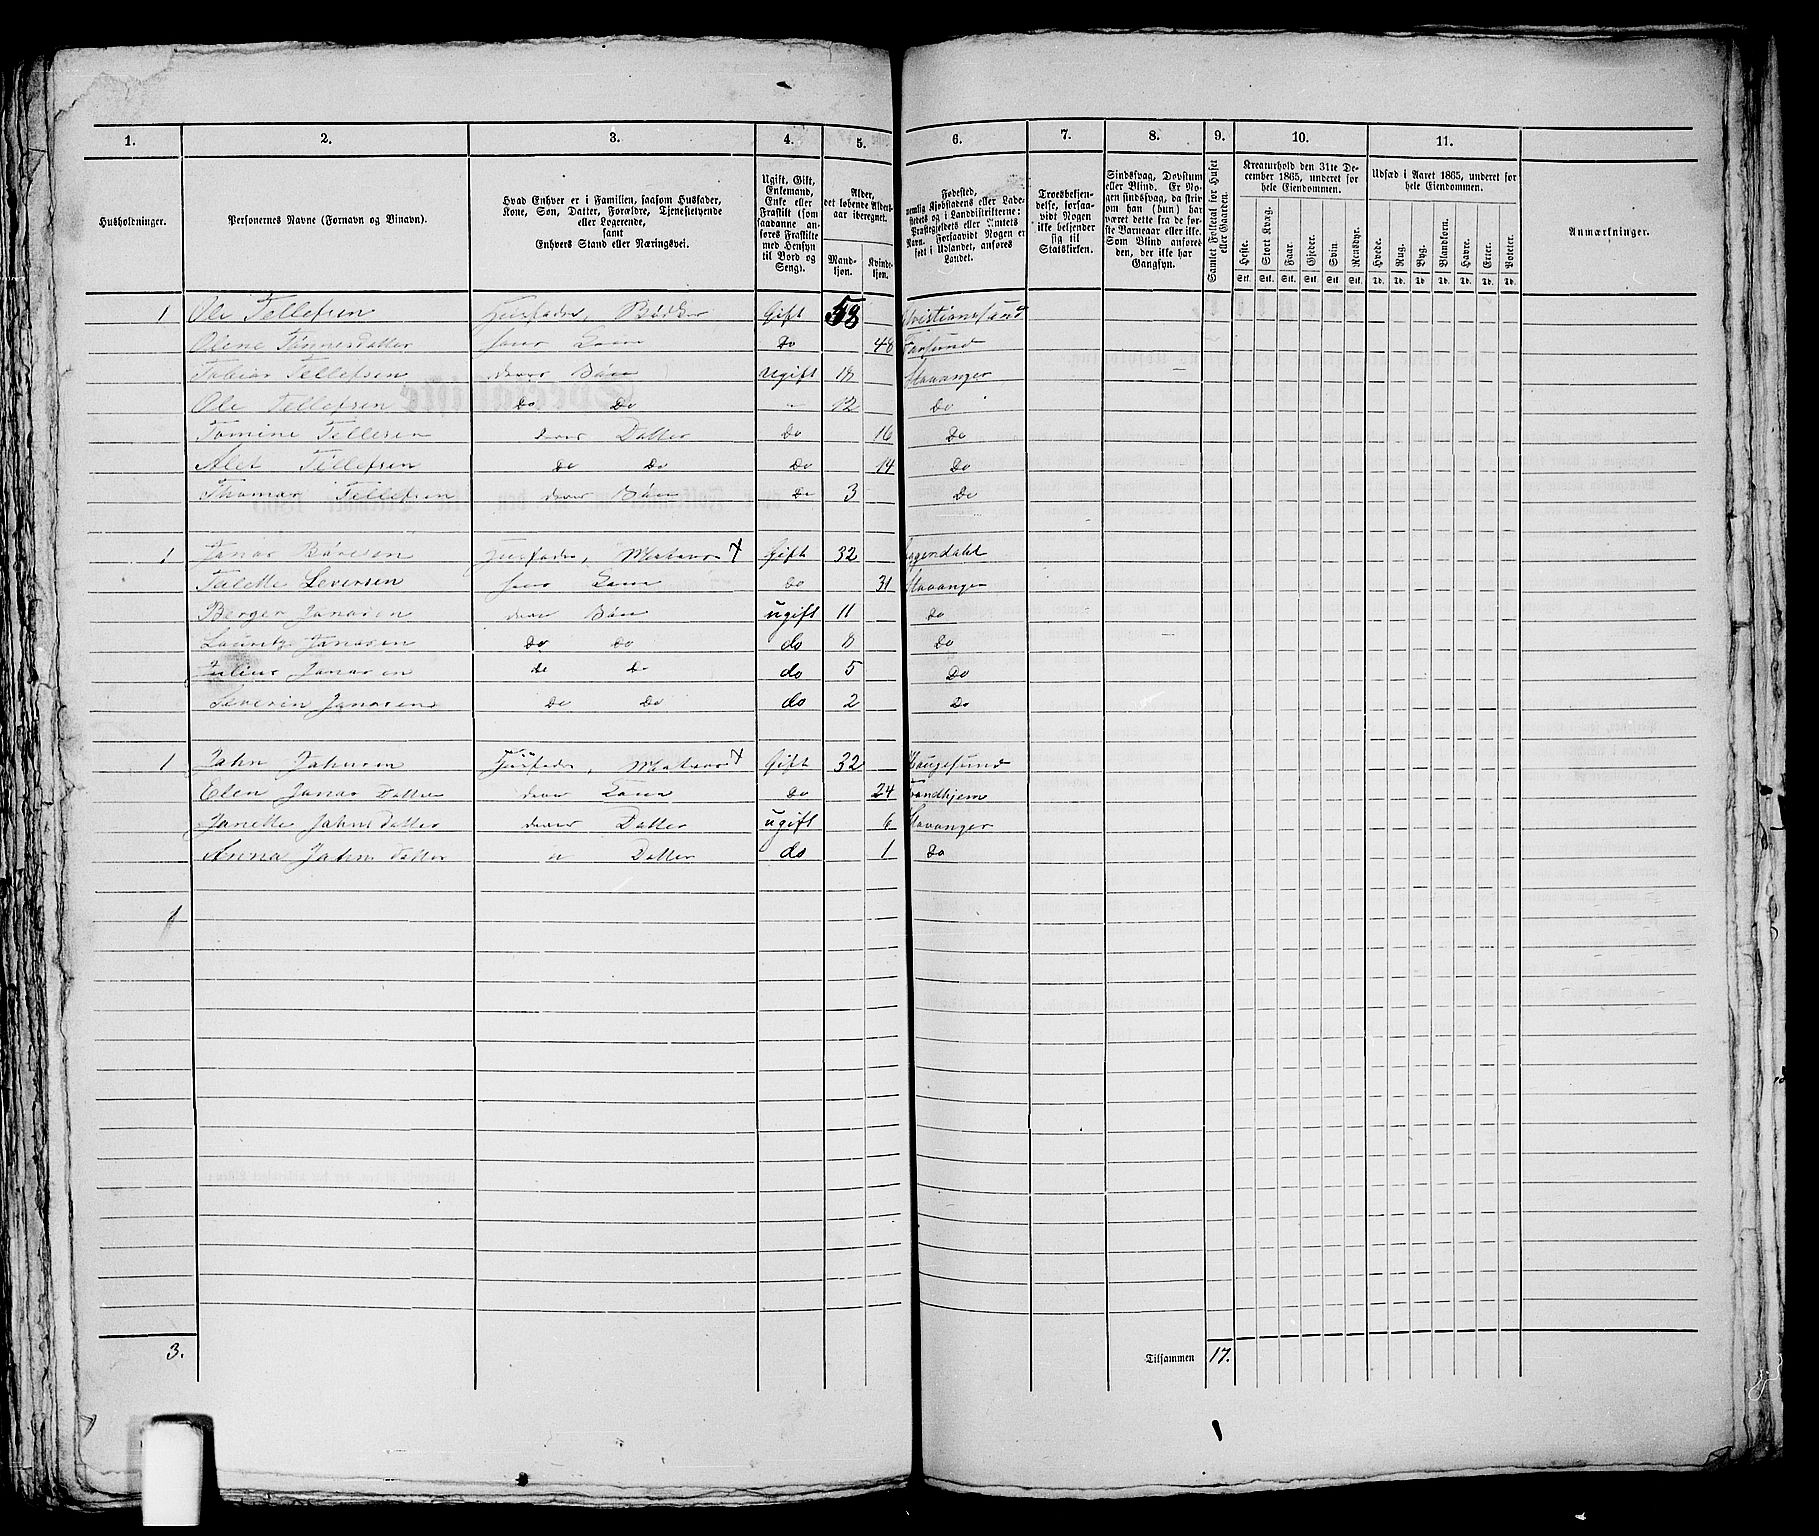 1. 2. 3. 4. 5. 6. 7. 8. 9. 10. 11.
Husholdninger.
Personernes Navne (Fornavn og Binavn).
Hvad Enhver er i Familien, saasom Husfader,
Kone, Søn, Datter, Forældre, Tjenestetyende
eller Logerende,
samt
Enhvers Stand eller Næringsvei.
Ugift, Gift,
Enkemand,
Enke eller
Fraskilt (som
saadanne an-
føres Fraskilte
med Hensyn
til Bord og
Seng).
Alder,
det løbende Alders-
aar iberegnet.
Mand-
kjøn.
Kvinde-
kjøn.
Fødested,
nemlig Kjøbstadens eller Lade-
stedets og i Landdistrikterne:
Præstegjeldets eller Amtets
Navn. Forsaavidt Nogen er
født i Udlandet, anføres
Landet.
Troesbekjen-
delse, forsaa-
vidt Nogen
ikke bekjender
sig til
Statskirken.
Sindssvag, Døvstum
eller Blind. Er No-
gen sindssvag, da skriv
om han (hun) har
været dette fra de før-
ste Barneaar eller ikke.
Som Blind anføres
den, der ikke har
Gangsyn.
Samlet Folketal for Huset
eller Gaarden.
Kreaturhold den 31te De-
cember 1865, underet for
hele Eiendommen.
Heste. Stort Kvæg. Faar. Gjeder. Svin. Rensdyr.
Stk. Stk. Stk. Stk. Stk. Stk.
Udsæd i Aaret 1865, underet for
hele Eiendommen.
Hvede. Rug. Byg. Blandkorn. Havre. Erter. Poteter.
Td. Td. Td. Td. Td. Td. Td.
Anmærkninger.
1 Ole Tellefsen Husfader, Bødker Gift 58 Christianssand
Tønnesdatter hans Kone Do 48 Farsund
Tobias Tellefsen deres Søn Ugift 18 Stavanger
Ole Tellefsen Do Do 12 Do
Tomine Tellesen deres Datter Do 16 Do
Alet Tellefsen Do Do Do 14 Do
Thomas Tellefsen deres Søn Do 3 Do
1 Jonas Husfader, Matros Gift 32
Seversen hans Kone Do 31 Stavanger
Berger Jonasen deres Søn ugift 11 Do
Lauritz Jonasen Do Do do 8 Do
Julius Jonasen Do Do do 5 Do
Severin Jonasen Do Do do 2 Do
1 John Johnsen Husfader, Matros Gift 32 Haugesund
Elen Jonas Datter Kone Do 24 Trondhjem
Janette Johns Datter deres Datter ugift 6 Stavanger
Anna Johns Datter " Datter do 1 Do
1
3.
Tilsammen 17.